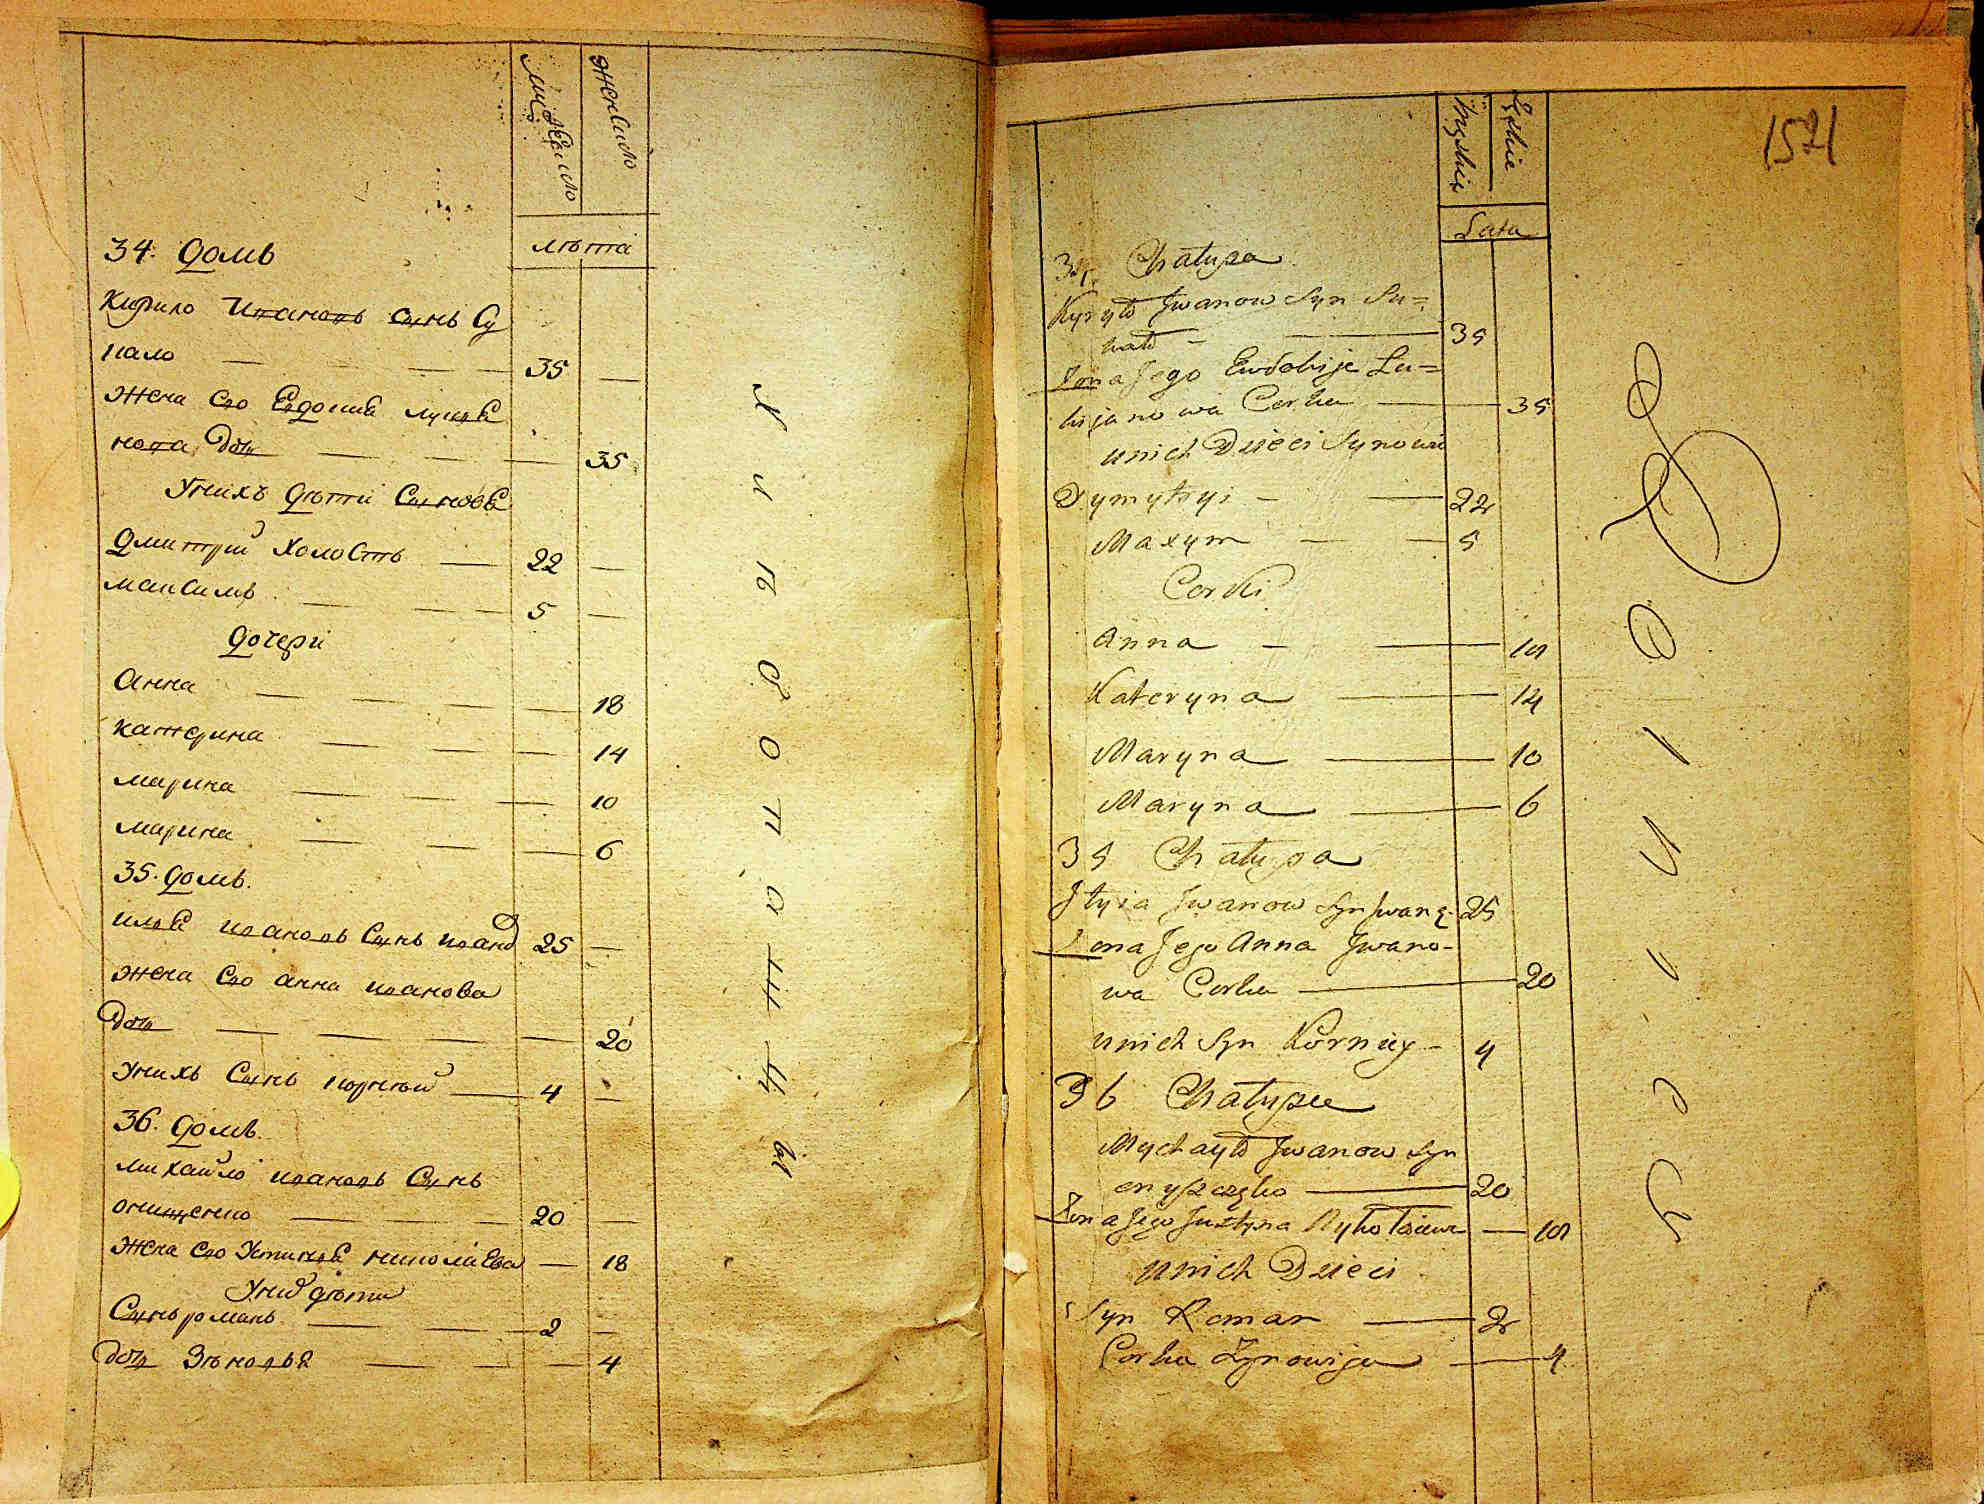 мужеско
женско
лѣта
34. домъ
Кирило Ивановъ сынъ Су
пало 35
жена Его Евдокиѣ лукиѣ
нова дочь 35
Унихъ дѣти Сыновѣ
Дмитрий холостъ 22
максимъ 5
дочери
Анна 18
катерина 14
марина 10
марина 6
35. домъ.
илиѣ ивановъ Сынъ 25
жена Его анна иванова
дочь 20
Унихъ Сынъ корней 4
36. домъ.
михайло ивановъ Сынъ
онищенко 20
жена Его Устиниѣ николаЕва 18
Уних дѣти
Сынъ романъ 2
дочь Зѣновиѣ 4
Х л ѣ б о п а ш ц ы
1521
Męzkie
Zęskie
Lata
34 Chałupa
Kyryło Jwanow Syn Su=
pało 35
Zona Jego Ewdokije Lu=
kijanowa Corka 35
unich Dzieci Synowie
Dymytryi 22
Maxym 5
Corki
Anna 18
Kateryna 14
Maryna 10
Maryna 6
35 Chałupa
Jłyia Jwanow Syn 25
Zona Jego Anna Jwano-
wa Corka 20
unich Syn Korniey 4
36 Chałupa
Mychayło Jwanow Syn
20
Zona Jego Justyna 18
unich Dzieci
Syn Roman 2
Corka Zynowija 4
R o l n i c y